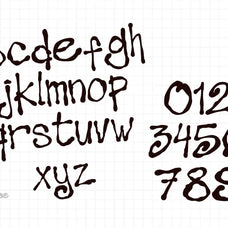 cdefgh
jklmnop
qrstuvw
xyz
012
345
78